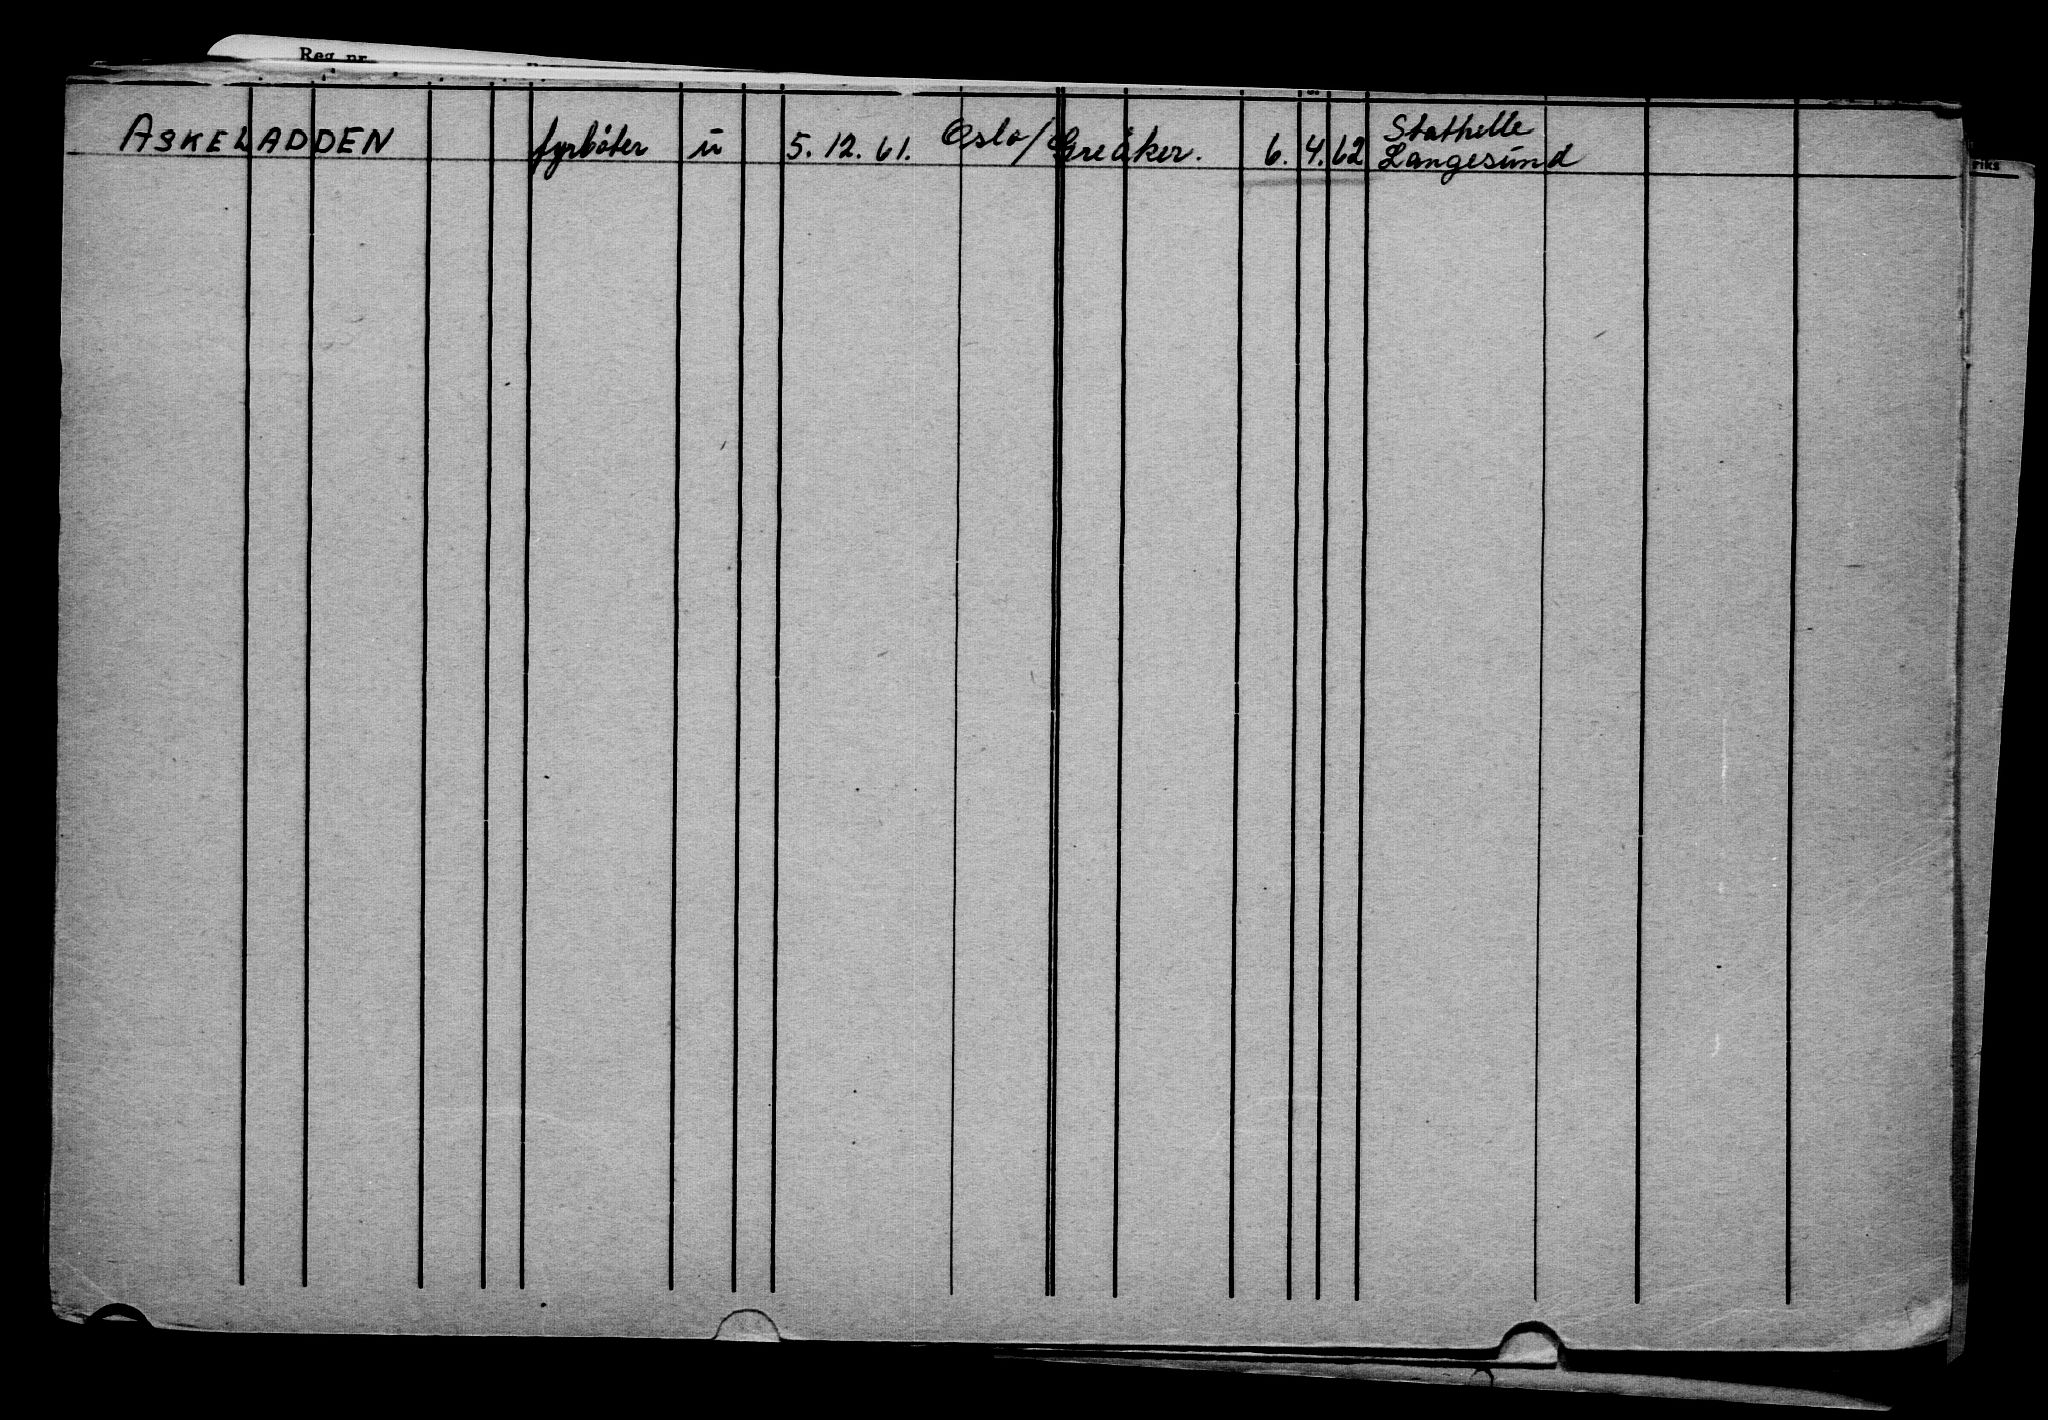 Reg. nr.
ASKELADDEN fyrbøter u 5. 12. 61. Oslo/Greåker. 6. 4. 62 Stathelle
Langesund
riks